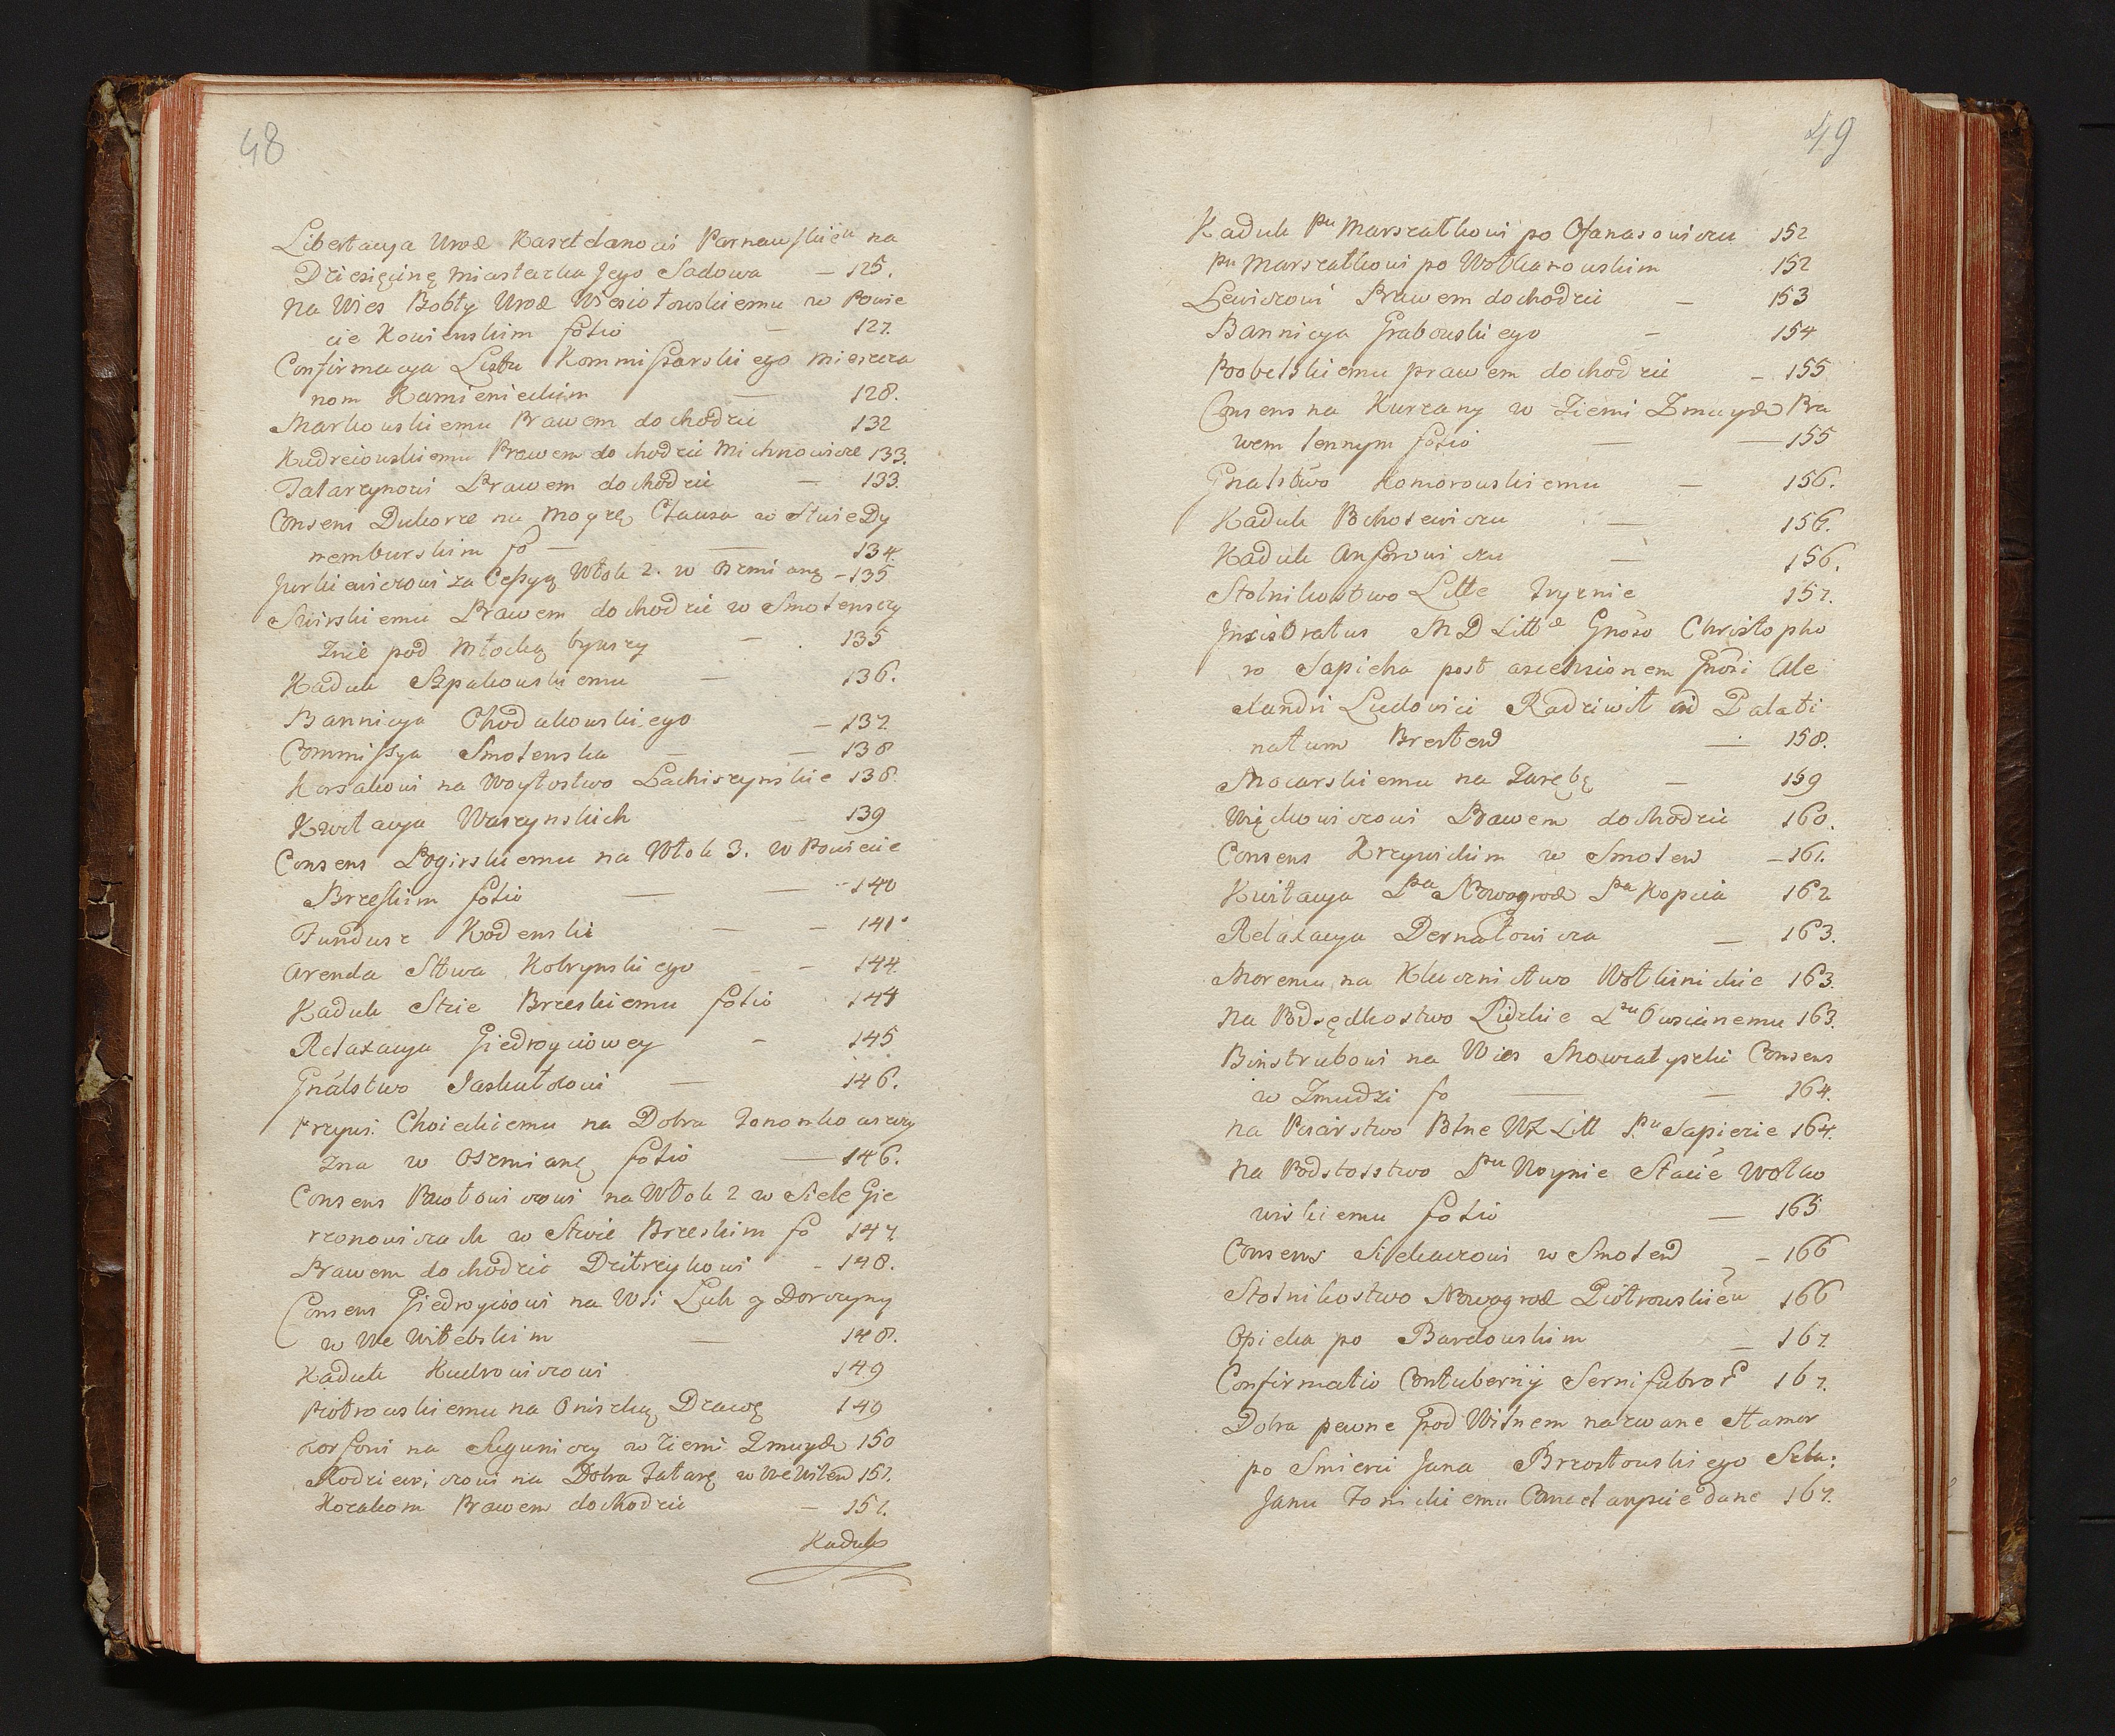 48
Libertacya Urod Kasztelanowi Parnawskieu na
Dziesięcinę Miasteczka Jego Sadowa — 125.
Na Wies Bobty Urod Wesiołowskiemu w Powie
cie Kowienskim folio — 127.
Confirmacya Listu Kommissarskiego Miescza
nom Kamienieckim — 128.
Markowskiemu Prawem dochodzic 132
Kudreiowskiemu Prawem dochodzic Michnowicze 133.
Tatarzynowi Prawem dochodzic — 133.
Consens Dukorze na Mogrę Clausa w Stwie Dy
nemburskim fo — — 134.
Jurkiewiczowi za Cessyą Włok 2. w Oszmianę — 135
Swirskiemu Prawem dochodzic w Smolenszczy
znie pod Młocką byłszy — 135
Kaduk Szpakowskiemu — 136.
Bannicya Chodakowskiego — 137.
Commissya Smolenska — — 138
Korsakowi na Woytostwo Lachiszynskie 138.
Kwitacya Waszynskich 139
Consens Pogirskiemu na Włok 3. w Powiecie
Brzeskim folio — — 140
Fundusz Kodenski — — 141
Arenda Stwa Kobrynskiego — — 144.
Kaduk Strie Brzeskiemu folio 144
Relaxacya Giedroyciowey — 145
Gnálstwo Jaskułdowi — 146.
Przywi: Choieckiemu na Dobra Jonomkowszczy
zna w Oszmianę folio — 146.
Consens Pawłowiczowi na Włok 2 w Siele Gie
rzonowiczach w Stwie Brzeskim fo 147.
Prawem dochodzic Ditrzykowi — 148.
Consens Giedroyciowi na Wsi Luk y Dorczyny
w We Witebskim — 148.
Kaduk Kudrowiczowi 149
Piotrowskiemu na Oniszką Drawę 149
Korfowi na Puguniszy w Ziemi Zmuydz 150
Modziewiczowi na Dobra Tatarę w We Wilen 151.
Kozakom Prawem dochodzic — 151.
Kaduk
49
Kaduk Pu Marszałkowi po Ofanasowiczu 152
Pu Marszałkowi po Wołkanowskim 152
Lewiczowi Prawem dochodzic — 153
Bannicya Grabowskiego — 154
Poobelskiemu prawem dochodzic — 155
Consens na Kurzany w Ziemi Zmuydz Pra
wem lennym folio — — 155
Gnalstwo Komorowskiemu — 156.
Kaduk Pocholewiczu — 156.
Kaduk Anforowiczu — 156.
Stolnikostwo Litte Zryznie 157.
Inxistratus M D Littæ Gnoso Christopho
ro Sapieha post ascensionem Gnosi Ale
xandri Ludovici Radziwił ad Palati
natum Bresten — 158.
Mocarskiemu na Zarębę — 159
Więckowiczowi Prawem dochodzic 160.
Consens Krzywickim w Smolen — 161.
Kwitacya Pa Nowogrod Pa Kopcia 162
Relaxacya Dernałowicza — 163.
Moremu na Klucznictwo Wołkinickie 163.
Na Podsędkostwo Lidzkie Pu Owsianemu 163.
Binstrubowi na Wies Mowzatyszki Consens
w Zmudzi fo — — 164.
na Pisarstwo Polne WX Litt Pu Sapiezie 164.
Na Podstolstwo Pu Woynie Stacie Wołko
wiskiemu folio — 165
Consens Siekaczowi w Smolen — 166
Stolnikostwo Nowogrod Piotrowskieu 166
Opieka po Bardowskim — 167.
Confirmatio Contubernij Serrifabror 167.
Dobra pewne pod Wilnem nazwane Hamor
po Smierci Jana Brzostowskiego Szla:
Janu Zonickiemu Cancelarycie dane 167.